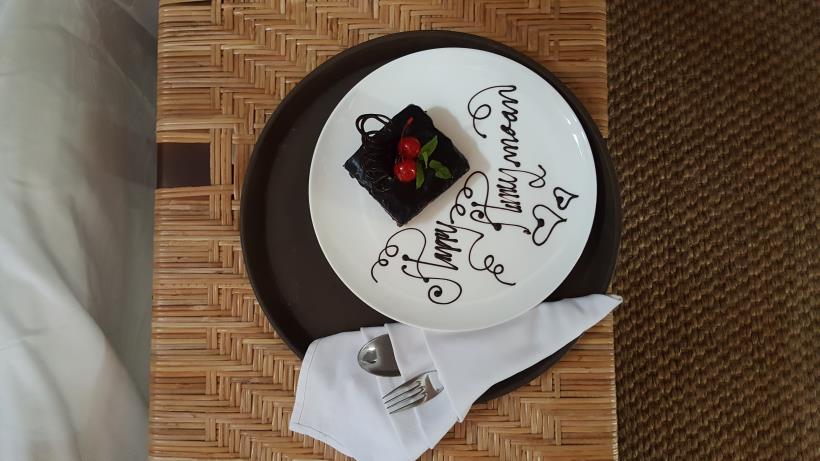 Happy
Honeymoon